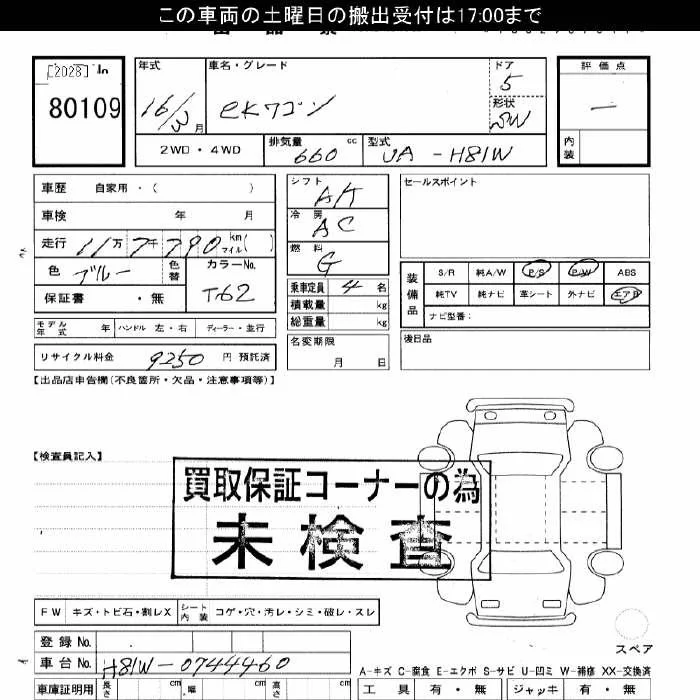 この車両の土曜日の搬出受付は17:00まで
[2028]
80109
年式
16/3月
車名・グレード
eKワゴン
ドア
5
形状
SW
評価点
—
内装
2WD・4WD
排気量 660 cc
型式 UA-H81W
車歴 自家用・( )
車検 年 月
走行 11万7千790 km マイル( )
色 ブルー 色替
カラーNo. T62
保証書 ・無
モデル年式 年 ハンドル 左・右 ディーラー・並行
リサイクル料金 9250 円 預託済
シフト AT
冷房 AC
燃料 G
乗車定員 4 名
積載量 kg
総重量 kg
名変期限
月 日
セールスポイント
装備品
S/R 純A/W P/S P/W ABS
純TV 純ナビ 革シート 外ナビ エアB
ナビ型番:
後日品
【出品店申告欄(不良箇所・欠品・注意事項等)】
【検査員記入】
買取保証コーナーの為
未検査
FW キズ・トビ石・割レX シート内装 コゲ・穴・汚レ・シミ・破レ・スレ
スペア
登録No.
車台No. H81W-0744460
A-キズ C-腐食 E-エクボ S-サビ U-凹ミ W-補修 XX-交換済
車庫証明用 長さ cm 幅 cm 高さ cm
工具 有・無 ジャッキ 有・無